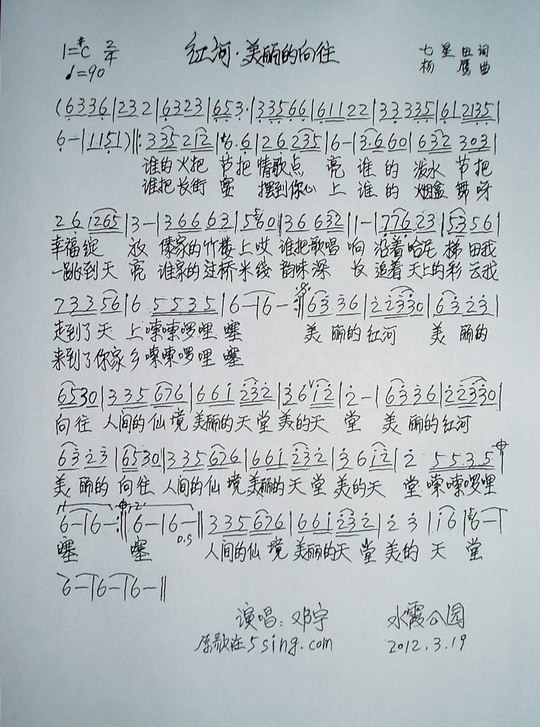 1=#C 2/4 红河·美丽的向往 七星田 词
♩=90 杨鹰 曲
(6336|232|6323|653·|33566|61122|333335|612135|
6-|1151)‖:335212|6·6|26235|6-|3·6660|632 303|
谁的火把 节把情歌点 亮 谁的 泼水 节把
谁把长街 宴 摆到你心 上 谁的 烟盒 舞呀
26 1265|3-|36663|5660|36 632|1-|77623|5356|
幸福绽 放 傣家的竹楼上哎 谁把歌唱 响 沿着哈尼 梯田我
一跳到天 亮 谁家的过桥米线 韵味深 长 追着天上的彩 云我
723356|6 5535|6-|6-:‖6336|22330|6323|
走到了天 上嗦嗦啰哩 噻 美 丽的红河 美 丽的
来到了你家 乡嗦嗦啰哩 噻
6530|335676|661232|3 612|2-|6336|22330|
向往 人间的仙 境 美丽的天 堂 美的天 堂 美 丽的红河
6323|6530|335676|661232|3 612|2 5535|
美 丽的 向往 人间的仙 境美丽的天 堂 美的天 堂嗦嗦啰哩
6-|6-:‖6-|6-‖335676|661232|2 3|16|6-|
噻 噻 0.5 人间的仙 境 美丽的天 堂 美的 天 堂
6-|6-|6-‖
演唱:邓宇 水霞公园
原歌在5sing.com 2012.3.19